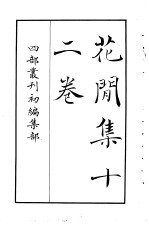 花間集十
二卷
四部叢刊初編集部